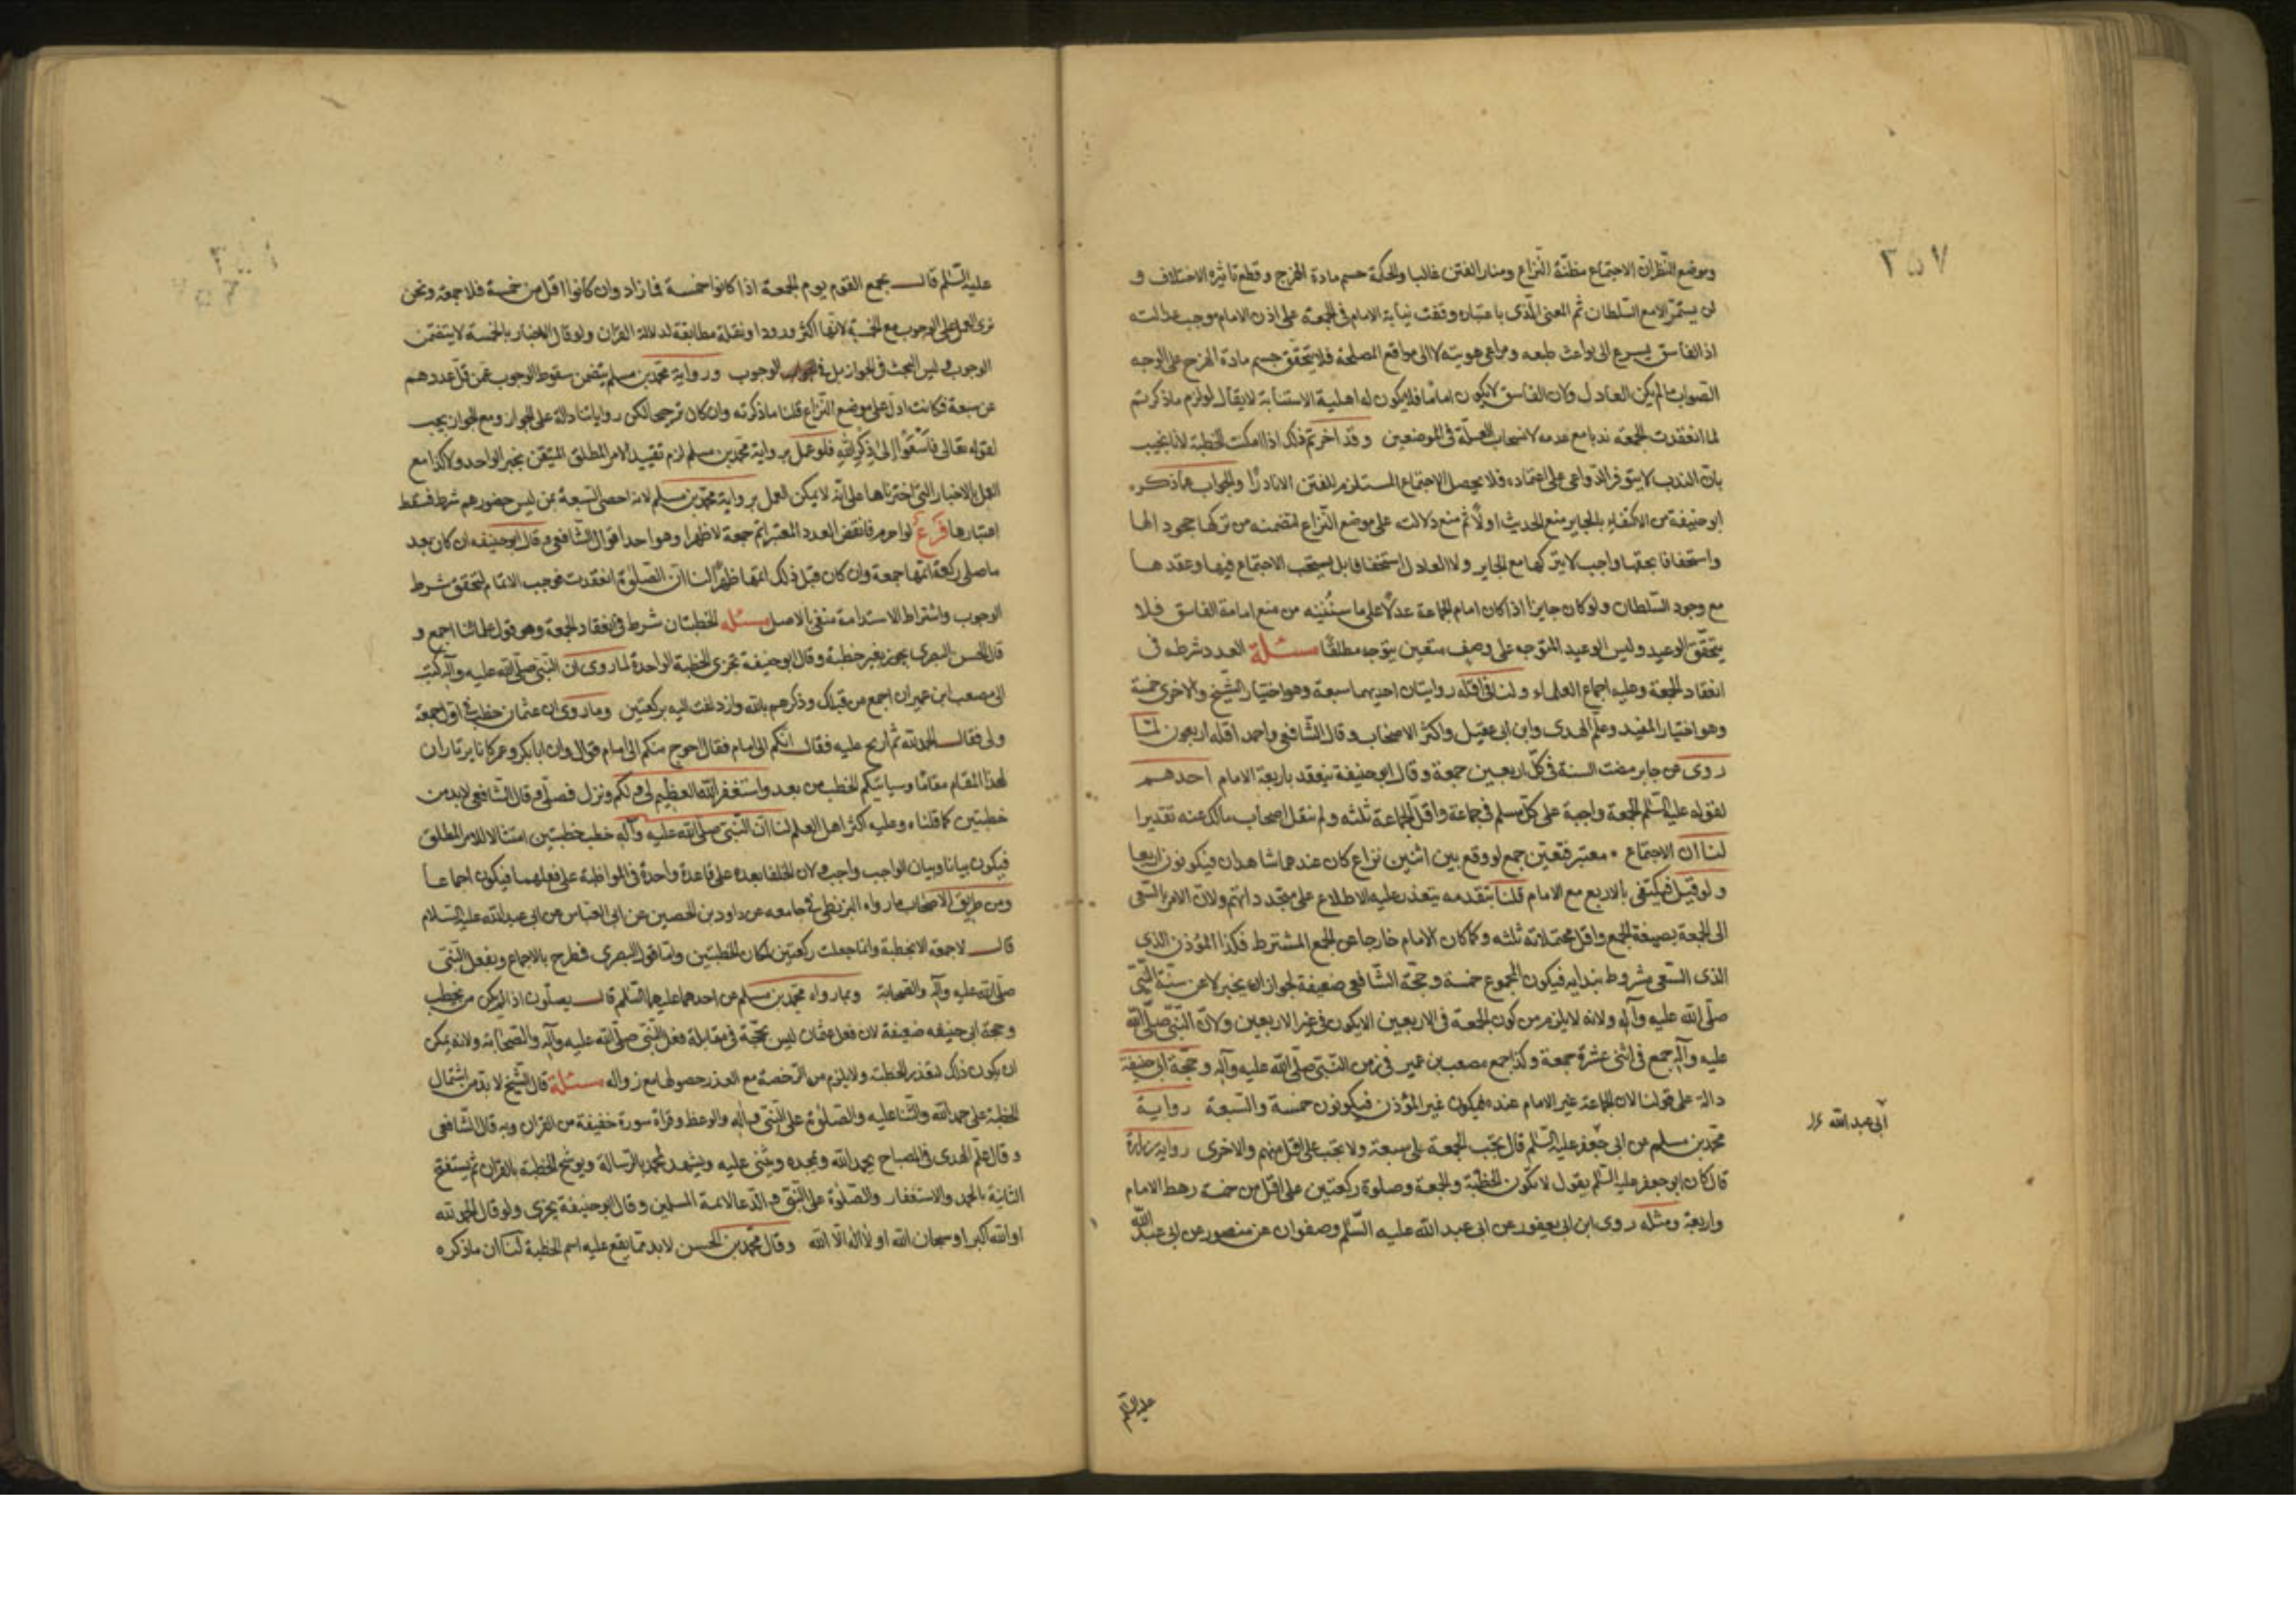 ٢٥٧
وموضع النظران الاجتماع مظنّة النزاع ومنار الفتن غالبا والحكمة حسم مادة الهرج وقطع نائرة الاختلاف و
لن يستمرّ الامع السلطان ثم المعنى الذى باعتباره وقفت نيابة الامام فى الجمعة على اذن الامام موجب عدالته
اذ الفاسق يسرع الى بواعث طبعه ومرامى هويته لا الى مواقع المصلحة فلا يتحقق حسم مادة الهرج على الوجه
الصواب مالم يكن العادل ولان الفاسق لايكون اماما فلا يكون له اهلية الاستنابة لايقال لو لزم ماذكرتم
لما انعقدت الجمعه ندبا مع عدمه لانسحاب العلّة فى الموضعين وقد اجزتم ذلك اذا امكنت الخطبة لانا نجيب
بان الندب لايتوفر الدواعى على اعتماده فلا يحصل الاجتماع المستلزم للفتن الا نادرًا والجواب عما ذكره
ابو حنيفة من الاكتفاء بالجاير منع الحديث اولًا ثم منع دلالته على موضع النزاع لتضمنه من تركها جحودا لها
واستخفافا بحقها واجب لايتركها مع الجاير ولا العادل استخفافا بل يستحب الاجتماع فيها وعقدها
مع وجود السلطان ولو كان جايرا اذا كان امام الجماعة عدلًا على ما سنبيّنه من منع امامة الفاسق فلا
يتحقق الوعيد وليس الوعيد المتوجه على وصف متعين يتوجه مطلقًا مسئلة العدد شرطه فى
انعقاد الجمعة وعليه اجماع العلماء ولنا فى اقله روايتان احديهما سبعة وهو اختيار الشيخ والاخرى خمسة
وهو اختيار المفيد وعلم الهدى وابن ابى عقيل واكثر الاصحاب وقال الشافعى واحمد اقله اربعون لما
روى عن جابر مضت السنة فى كل اربعين جمعة وقال ابو حنيفة ينعقد باربعة الامام احدهم
لقوله عليه السلم الجمعة واجبة على كل مسلم فى جماعة واقل الجماعة ثلثه ولم ينقل اصحاب مالك عنه تقديرا
لنا ان الاجتماع معتبر فتعين جمع لو وقع بين اثنين نزاع كان عندهما شاهدان فيكونون اربعا
ولو قيل فيكتفى بالاربع مع الامام قلنا بتقدمه يتعذر عليه الاطلاع على متجدداتهم ولان الامر بالسعى
الى الجمعة بصيغة الجمع واقل محتملاته ثلثه وكما كان الامام خارجا عن الجمع المشترط فكذا المؤذن الذى
الذى السعى مشروط بندايه فيكون المجموع خمسة وحجّة الشافعى ضعيفة لجواز ان يخبر لا عن سنة النبى
صلى الله عليه وآله ولانه لايلزم من كون الجمعة فى الاربعين الا يكون فى غير الاربعين ولان النبى صلى الله
عليه وآله جمع فى اثنى عشرة جمعة وكذا جمع مصعب بن عمير فى زمن النبى صلى الله عليه وآله وحجّة ابى حنيفة
دالة على قولنا لان الجماعة غير الامام عنده فيكون غير المؤذن فيكونون خمسة والسبعة رواية
محمد بن مسلم عن ابى جعفر عليه السلم قال تجب الجمعة على سبعة ولا تجب على اقل منهم والاخرى رواية زرارة
قال كان ابو جعفر عليه السلم يقول لاتكون الخطبة والجمعة وصلوة ركعتين على اقل من خمسة رهط الامام
واربعة ومثله روى ابن ابى يعفور عن ابى عبد الله عليه السلم وصفوان عن منصور عن ابى عبد الله
ابى عبد الله
عليه السلم
عليه السلم قال يجمع القوم يوم الجمعة اذا كانوا خمسة فما زاد وان كانوا اقل من خمسة فلا جمعة ونحن
نرى العمل على الوجوب مع الخمسة لانها اكثر ورودا ونقلة مطابقة لدلالة القران ولو قال الاخبار بالخمسة لايتضمن
الوجوب وليس البحث فى الجواز بل فى الوجوب ورواية محمد بن مسلم يتضمن سقوط الوجوب عمن قل عددهم
عن سبعة فكانت ادل على موضع النزاع قلنا ما ذكرته وان كان ترجيحا لكن رواياتنا دالة على الجواز ومع الجواز يجب
لقوله تعالى فاسعوا الى ذكر الله فلو عمل برواية محمد بن مسلم لزم تقييد الامر المطلق المتيقن بخبر الواحد ولاكذا مع
العمل بالاخبار التى اخترناها على انه لايمكن العمل برواية محمد بن مسلم لانه احصى السبعة بمن ليس حضورهم شرط فسقط
اعتبارها فرع لو احرم فانفض العدد المعتبر اتم جمعة لا ظهرا وهو احد اقوال الشافعى وقال ابو حنيفه ان كان بعد
ما صلى ركعة اتمها جمعة وان كان قبل ذلك اتمها ظهرا لنا ان الصلوة انعقدت فوجب الاتمام لتحقق شرط
الوجوب واشتراط الاستدامة منفى بالاصل مسئله الخطبتان شرط فى انعقاد الجمعة وهو قول علمائنا اجمع و
قال الحسن البصرى يجوز بغير خطبة وقال ابو حنيفة تجزى الخطبة الواحدة لما روى ان النبى صلى الله عليه وآله كتب
الى مصعب ابن عمير ان اجمع من قبلك وذكرهم بالله وازدلفت اليه بركعتين وما روى ان عثمان خطب فى اول جمعة
ولى فقال الحمد لله ثم ارتج عليه فقال انكم الى امام فعال احوج منكم الى امام قوال وان ابا بكر وعمر كانا يرتادان
لهذا المقام مقاما وسياتيكم الخطب من بعد واستغفر الله العظيم لى ولكم ونزل فصلى وقال الشافعى لابد من
خطبتين كما قلناه وعليه اكثر اهل العلم لنا ان النبى صلى الله عليه وآله خطب خطبتين امتثالا للامر المطلق
فيكون بيانا وبيان الواجب واجب ولان الخلفا بعده على قاعدة واحدة فى المواظبة على فعلهما فيكون اجماعا
ومن طريق الاصحاب ما رواه البزنطى فى جامعه عن داود بن الحصين عن ابى العباس عن ابى عبدالله عليه السلام
قال لا جمعة الا بخطبة وانما جعلت ركعتين لمكان الخطبتين واما قول البصرى فطرح بالاجماع وبفعل النبى
صلى الله عليه وآله والصحابة وبما رواه محمد بن مسلم عن احدهما عليهما السلم قال يصلون اذا لم يكن من يخطب
وحجة ابى حنيفه ضعيفة لان فعل عثمان ليس بحجّة فى مقابلة فعل النبى صلى الله عليه وآله والصحابة ولانه يمكن
ان يكون ذلك لتعذر الخطبة ولايلزم من الرخصة مع العذر حصولها مع زواله مسئلة قال الشيخ لابد من اشتمال
الخطبة على حمد الله والثنا عليه والصلوة على النبى وآله والوعظ وقراة سورة خفيفة من القران وبه قال الشافعى
وقال علم الهدى فى المصباح يحمد الله ويمجده ويثنى عليه ويشهد لمحمد بالرسالة ويوشح الخطبة بالقران ثم يستفتح
الثانية بالحمد والاستغفار والصلوة على النبى والدعا لائمة المسلمين وقال ابو حنيفة يجزى ولو قال الحمد لله
او الله اكبر او سبحان الله او لا اله الا الله وقال محمد بن الحسن لابد مما يقع عليه اسم الخطبة لنا ان ماذكره